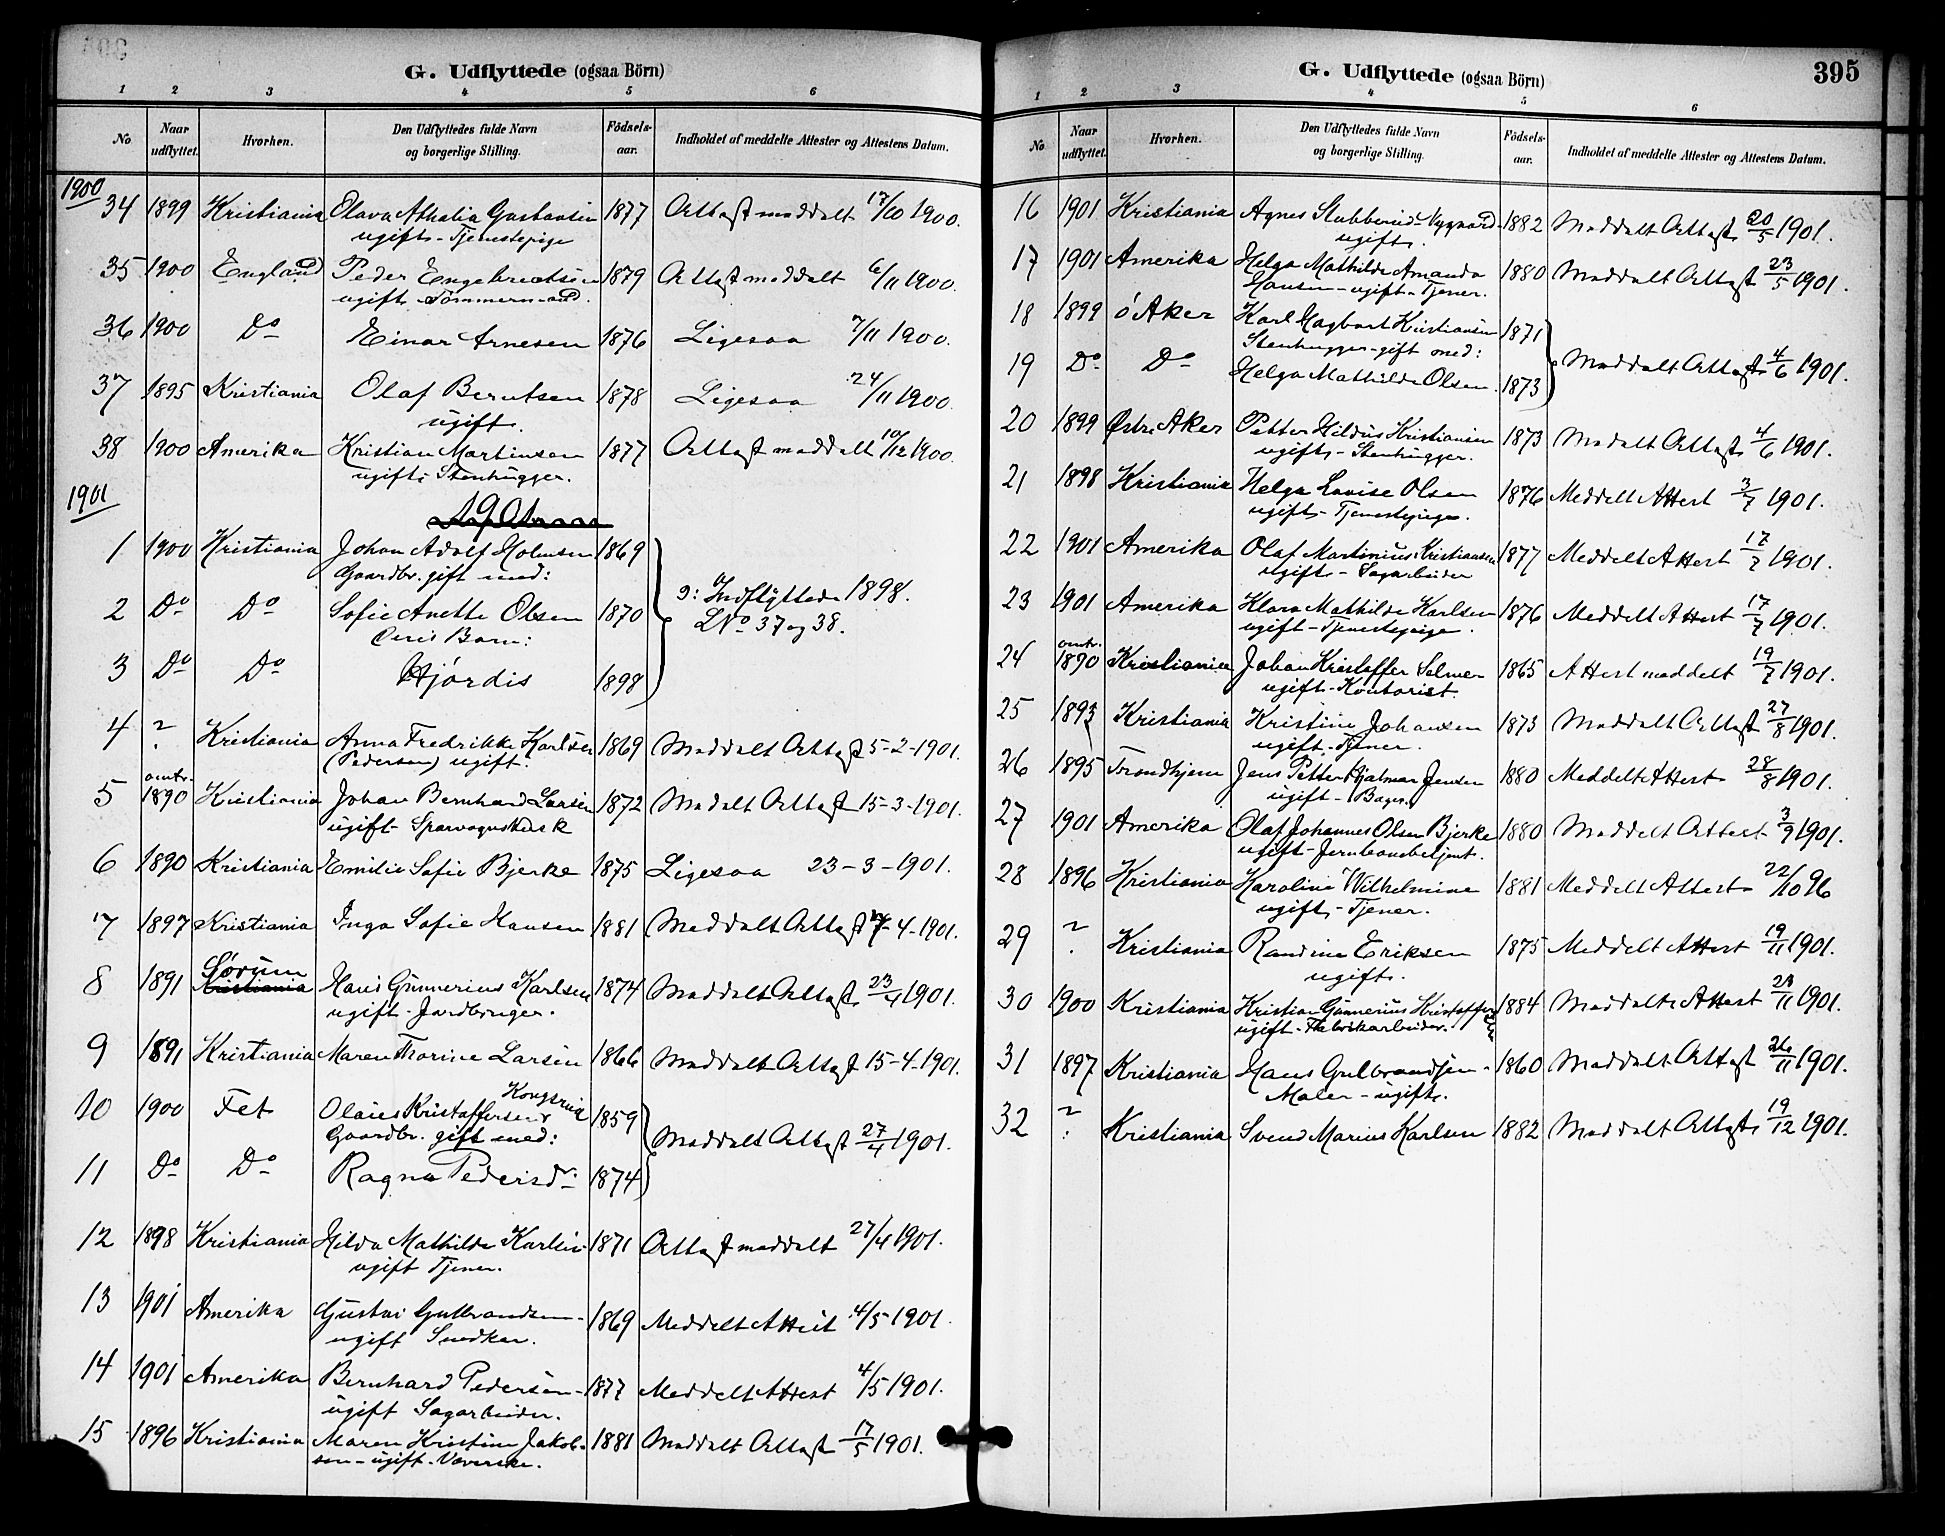 G. Udflyttede (ogsaa Börn)
1 2 3 4 5 6
No Naar udflyttet. Hvorhen. Den Udflyttedes fulde Navn og borgerlige Stilling. Födsels-aar. Indholdet af meddelte Attester og Attestens Datum.
1900
34 1899 Kristiania Olava Athalia Gustavsen 1877 Attest meddelt 17/10 1900.
ugift - Tjenestepige
35 1900 England Peder Engebretsen 1879 Attest meddelt 6/11 1900.
ugift Tömmermand.
36 1900 Do Einar Arnesen 1876 Ligesaa 7/11 1900.
37 1895 Kristiania Olaf Berntsen 1878 Ligesaa 24/11 1900.
ugift.
38 1900 Amerika Kristian Martinsen 1877 Attest meddelt 10/12 1900.
ugift; Stenhugger.
1901
1 1900 Kristiania Johan Adolf Holmsen 1869
Gaardbr. gift med:
2 Do Do Sofie Anette Olsen 1870 ɔ: Indflyttede 1898. LNo 37 og 38.
Deres Barn:
3 Do Do Hjördis 1898
4 ? Kristiania Anna Fredrikke Karlsen 1869 Meddelt Attest 5-2-1901.
(Pedersen) ugift.
5 omtr. 1890 Kristiania Johan Bernhard Larsen 1872 Meddelt Attest 15-3-1901.
ugift- Sporvognskusk
6 1890 Kristiania Emilie Sofie Bjerke 1875 Ligesaa 23-3-1901.
7 1897 Kristiania Inga Sofie Hansen 1881 Meddelt Attest -4-1901.
8 1891 Sörum Kristiania Hans Gunnerius Karlsen 1874 Meddelt Attest 23/4 1901.
ugift - Jordbruger.
9 1891 Kristiania Maren Thorine Larsen 1866 Meddelt Attest 15-4-1901.
10 1900 Fet Olaies Kristoffersen Kongsrud 1859
Gaardbr. gift med: Meddelt Attest 27/4 1901.
11 Do Do Ragna Pedersd. 1874
12 1898 Kristiania Hilda Mathilde Karlsen 1871 Attest meddelt 27/4 1901.
ugift Tjener.
13 1901 Amerika Gustav Gulbrandsen 1869 Meddelt Attest 4/5 1901.
ugift Snedker.
14 1901 Amerika Bernhard Pedersen 1877 Meddelt Attest 4/5 1901.
ugift Sagarbeider.
15 1896 Kristiania Maren Kristine Jakob- 1881 Meddelt Attest 17/5 1901.
sen - ugift - Væverske.
G. Udflyttede (ogsaa Börn) 395
1 2 3 4 5 6
No Naar udflyttet. Hvorhen. Den Udflyttedes fulde Navn og borgerlige Stilling. Födsels-aar. Indholdet af meddelte Attester og Attestens Datum.
16 1901 Kristiania Agnes Stubberud-Nygaard 1882 Meddelt Attest 20/5 1901.
ugift.
17 1901 Amerika Helga Mathilde Amanda 1880 Meddelt Attest 23/5 1901.
Hansen - ugift - Tjener.
18 1899 ö Aker Karl Hagbart Kristiansen 1871
Stenhugger - gift med: Meddelt Attest 4/6 1901.
19 Do Do Helga Mathilde Olsen. 1873
20 1899 Østre Aker Petter Hildus Kristiansen 1873 Meddelt Attest 4/6 1901.
ugift - Stenhugger.
21 1898 Kristiania Helga Lovise Olsen 1876 Meddelt Attest 3/7 1901.
ugift - Tjenestepige.
22 1901 Amerika Olaf Martinius Kristiansen 1877 Meddelt Attest 17/7 1901.
ugift - Sagarbeider
23 1901 Amerika Klara Mathilde Karlsen 1876 Meddelt Attest 17/7 1901.
ugift - Tjenestepige.
24 omtr. 1890 Kristiania Johan Kristoffer Selmer 1865 Attest meddelt 19/7 1901.
ugift - Kontorist.
25 1893 Kristiania Kristine Johansen 1873 Meddelt Attest 27/8 1901.
ugift - Tjener.
26 1895 Trondhjem Jens Petter Hjalmar Jensen 1880 Meddelt Attest 28/8 1901.
ugift - Bager.
27 1901 Amerika Olaf Johannes Olsen Bjerke 1880 Meddelt Attest 3/9 1901.
ugift - Jernbanebetjent.
28 1896 Kristiania Karoline Wilhelmine 1881 Meddelt Attest 22/10 96
ugift - Tjener.
29 ? Kristiania Randine Eriksen 1875 Meddelt Attest 19/11 1901.
ugift.
30 1900 Kristiania Kristian Gunnerius Kristoffersen 1884 Meddelt Attest 23/11 1901.
ugift - Fabrikarbeider.
31 1897 Kristiania Hans Gulbrandsen - 1860 Meddelt Attest 26/11 1901.
Maler - ugift.
32 ? Kristiania Svend Marius Karlsen 1882 Meddelt Attest 19/12 1901.